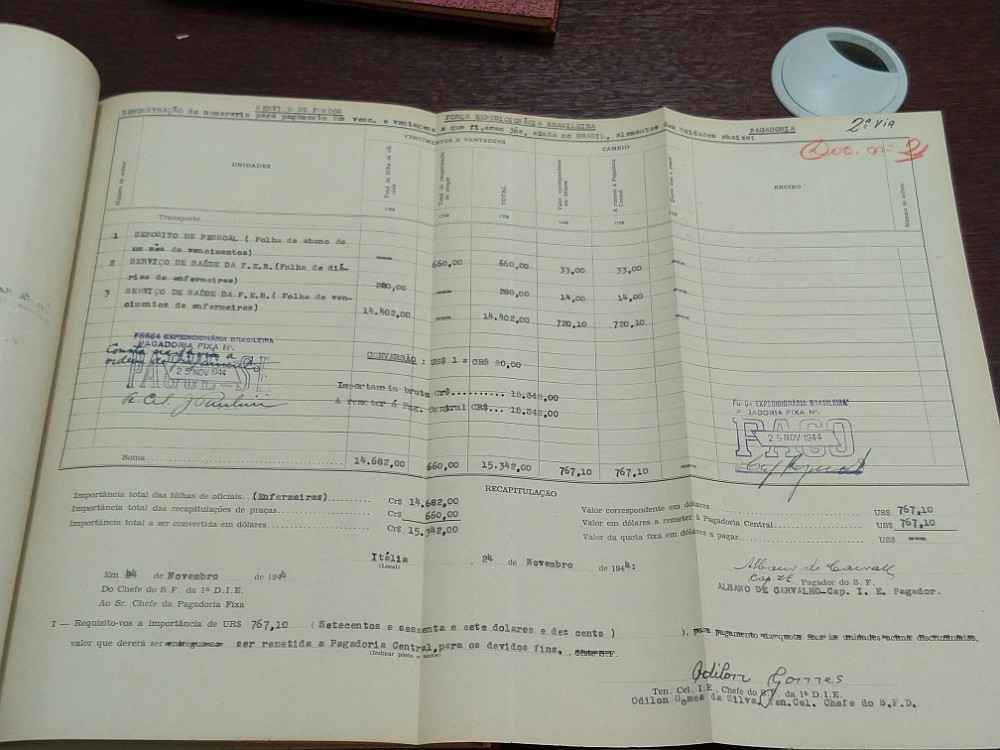 SERVIÇO DE FUNDOS
FORÇA EXPEDICIONÁRIA BRASILEIRA
PAGADORIA
2ª via
DEMONSTRAÇÃO do numerario para pagamento dos venc. e vantagens a que fizeram jús, ainda no BRASIL, elementos das Unidades abaixo:
Doc. nº 2
Número de ordem
UNIDADES
VENCIMENTOS E VANTAGENS
CAMBIO
RECIBO
Número de ordem
TOTAL
Valor correspondente em dólares
A remeter à Pagadoria Central
CR$ CR$ CR$ US$ US$
Transporte
1 DEPOSITO DE PESSOAL ( Folha de abono de
um mês de vencimentos) --- 660,00 660,00 33,00 33,00 ---
2 SERVIÇO DE SAÚDE DA F.E.B.(Folha de diá-
rias de enfermeiras) 280,00 --- 280,00 14,00 14,00 ---
3 SERVIÇO DE SAÚDE DA F.E.B.( Folha de ven-
cimentos de enfermeiras) 14.402,00 --- 14.402,00 720,10 720,10 ---
CONVERSÃO : US$ 1 = CR$ 20,00
Importancia bruta Cr$.......... 15.342,00
A remeter á Pag. Central CR$... 15.342,00
FORÇA EXPEDICIONÁRIA BRASILEIRA
PAGADORIA FIXA Nº.
25 NOV 1944
FORÇA EXPEDICIONÁRIA BRASILEIRA
PAGADORIA FIXA Nº.
PAGO
25 NOV 1944
Soma 14.682,00 660,00 15.342,00 767,10 767,10 ---
RECAPITULAÇÃO
Importância total das fôlhas de oficiais..(Enfermeiras) Cr$ 14.682,00
Importância total das recapitulações de praças Cr$ 660,00
Importância total a ser convertida em dólares Cr$ 15.342,00
Valor correspondente em dólares US$ 767,10
Valor em dólares a remeter à Pagadoria Central US$ 767,10
Valor da quota fixa em dólares a pagar US$ ---
Itália , 24 de Novembro de 1944:
(Local)
Em 24 de Novembro de 1944
Do Chefe do S.F. da 1ª D.I.E.
Ao Sr. Chefe da Pagadoria Fixa
Albano de Carvalho
Cap. I.E. Pagador do S. F.
ALBANO DE CARVALHO-Cap. I. E. Pagador.
I — Requisito-vos a importância de UR$ 767,10 (Setecentos e sessenta e sete dolares e dez cents ) ), para pagamento da quota fixa às unidades acima discriminadas,
valor que deverá ser entregue ao ser remetida a Pagadoria Central,para os devidos fins. , deste S.F.
(Indicar pôsto e nome)
Odilon Gomes
Ten. Cel. I.E., Chefe do S.F. da 1ª D.I.E.
Odilon Gomes da Silva, Ten.Cel. Chefe do S.F.D.